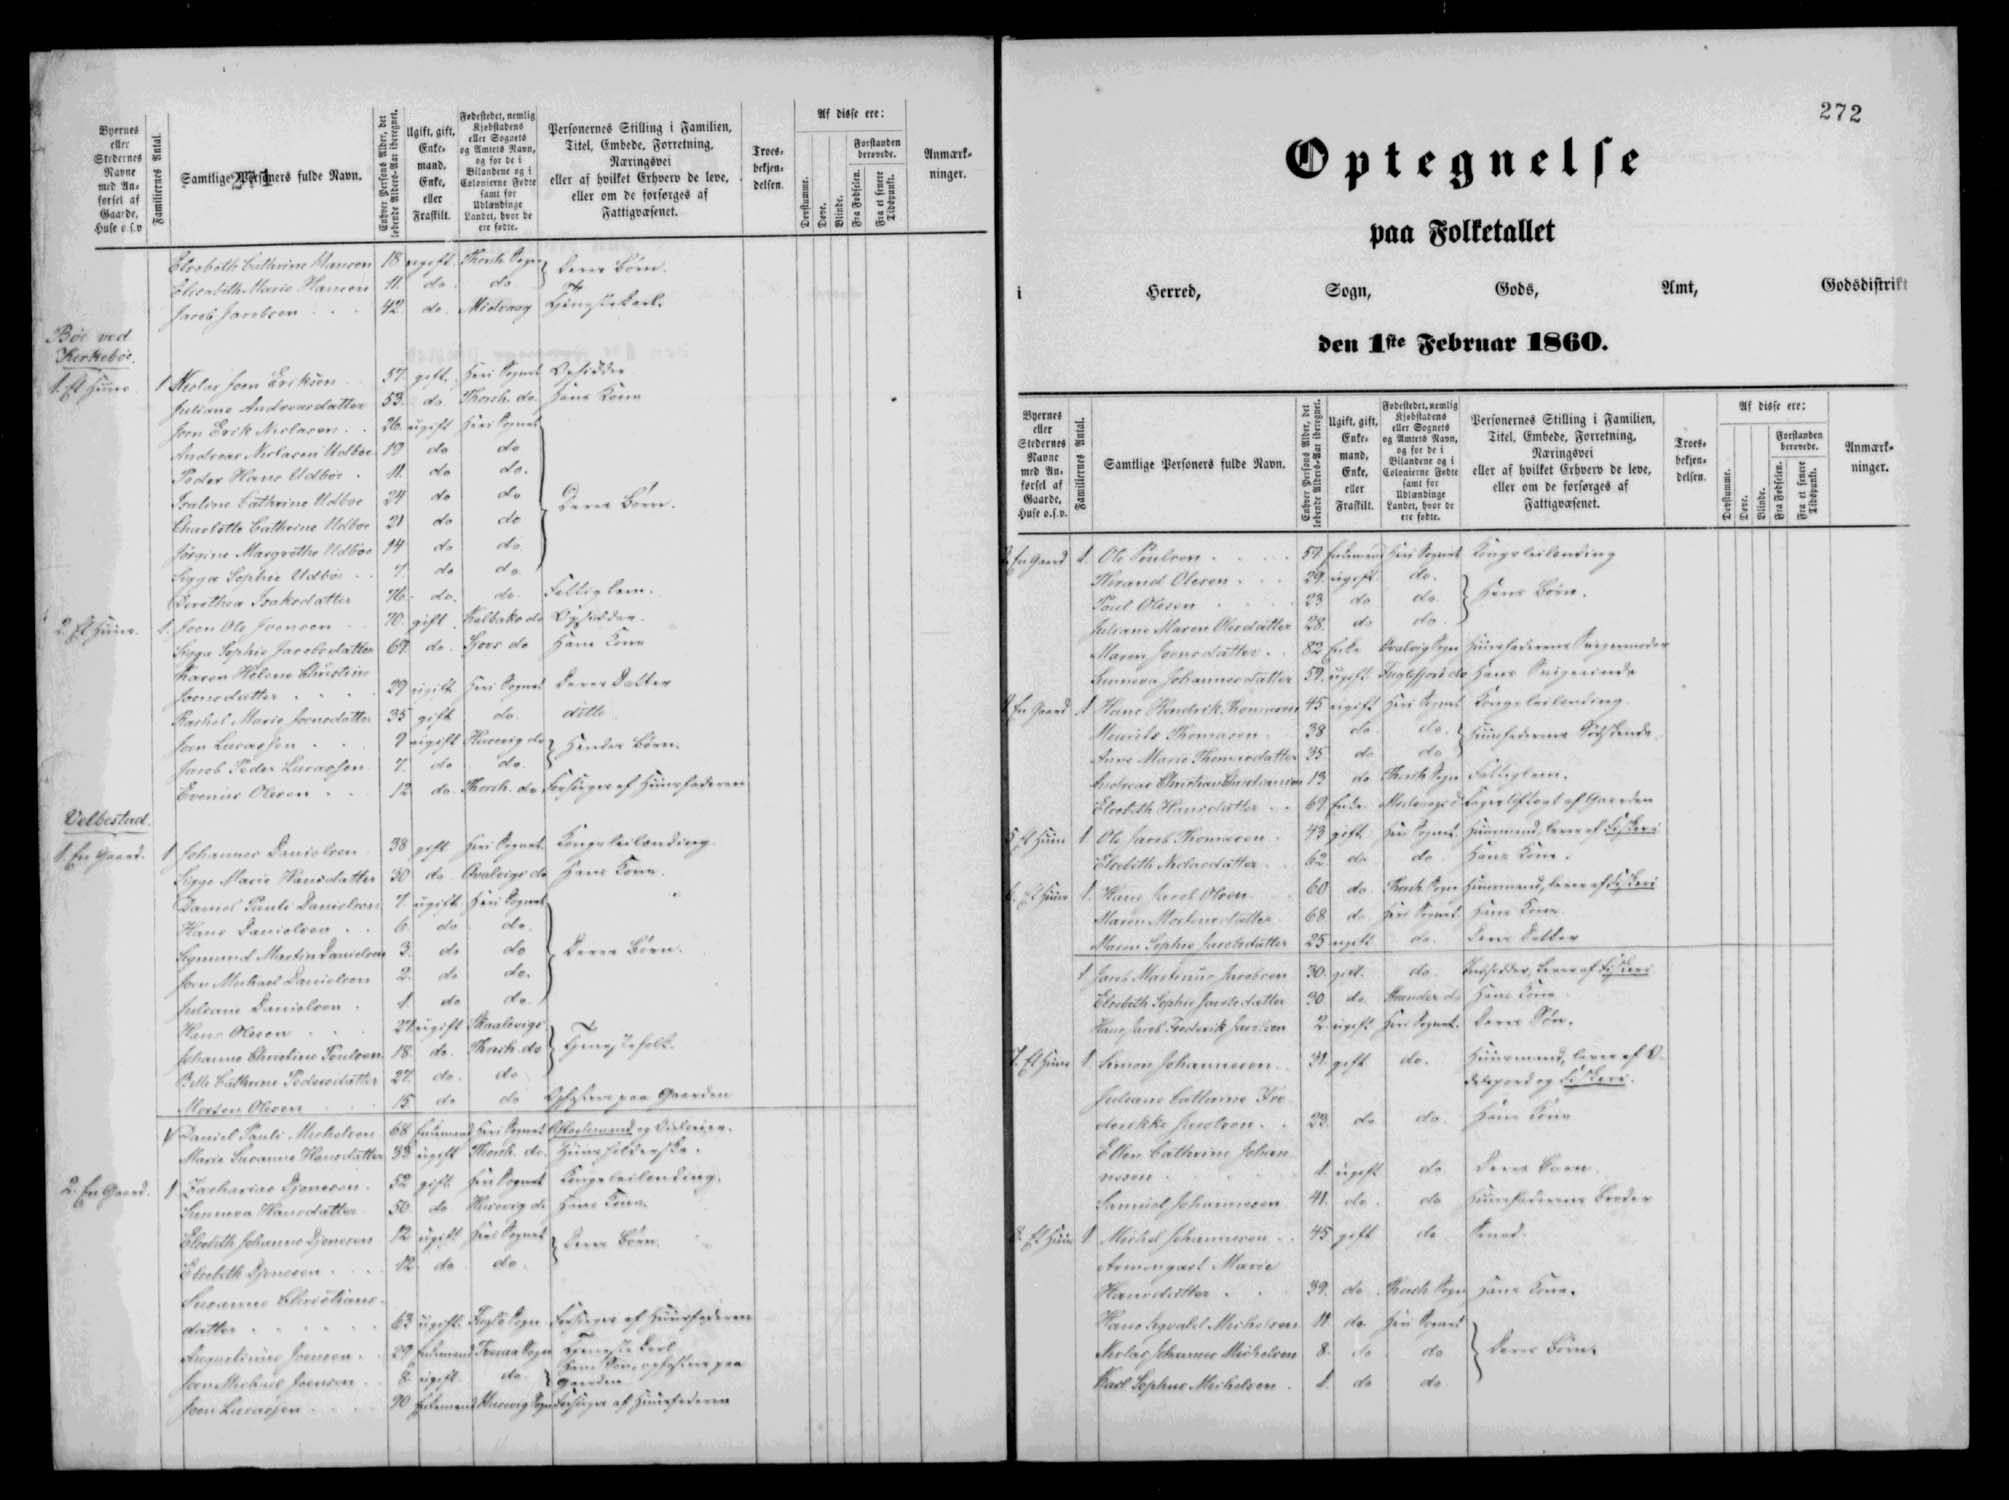 Byernes eller Stedernes Navne med Anførsel af Gaarde, Huse o.s.v
Familiernes Antal.
Samtlige Personers fulde Navn.
Enhver Persons Alder, det løbende Alders-Aar iberegnet.
Ugift, gift, Enkemand, Enke, eller Fraskilt.
Fødestedet, nemlig Kjøbstadens eller Sognets og Amtets Navn, og for de i Bilandene og i Colonierne Fødte samt for Udlændinge Landet, hvor de ere fødte.
Personernes Stilling i Familien, Titel, Embede, Forretning, Næringsvei eller af hvilket Erhverv de leve, eller om de forsørges af Fattigvæsenet.
Troesbekjendelsen.
Af disse ere:
Døvstumme.
Døve.
Blinde.
Forstanden berøvede.
Fra Fødselen.
Fra et senere Tidspunkt.
Anmærkninger.
Elsebeth Cathrine Hansen 18 ugift Thorsh. Sogn } Deres Børn.
Elisabeth Marie Hansen 11. do do.
Jacob Jacobsen 42 do. Midvaag Tjenestekarl.
Bøe ved Kirkebøe.
1. Et Huus. 1 Nicolai Joen Eriksen 57. gift. Heri Sognet Opsidder
Juliane Andreasdatter 53. do. Thorsh. do. Hans Kone
Joen Erik Niclasen 26. ugift Heri Sognet
Andreas Niclasen Udbøe 19 do do
Peder Hans Udbøe 11. do do.
Cathrine Udbøe 24 do do } Deres Børn.
Charlotte Cathrine Udbøe 21 do do
Jørgine Margrethe Udbøe 14 do do.
Sigga Sophie Udbøe 7. do do.
Dorothea Isaksdatter 76. do. do. Fattiglem.
2. Et Huus. 1. Joen Ole Joensen 70. gift. Kalbaks do Opsidder.
Sigga Sophie Jacobsdatter 69. do. do Hans Kone
Karen Helene Christine
Joensdatter 29 ugift Heri Sognet Deres Datter
Rachel Marie Joensdatter 35 gift do. ditto
Joen Lucassen 9 ugift Husevig do } Hendes Børn.
Jacob Peder Lucassen 7. do do.
Evenius Olesen 12. do. Thorsh. do Forsørges af Huusfaderen
Velbestad.
1. En Gaard. 1 Johannes Danielsen 38 gift Heri Sognet Kongsleilending
Sigga Marie Hansdatter 30 do. Qvalvigs do Hans Kone.
Daniel Pauli Danielsen 7. ugift Heri Sognet
Hans Danielsen 6. do do.
Sigmund Martin Danielsen 3. do do } Deres Børn.
Joen Michael Danielsen 2. do do.
Juliane Danielsen 1 do do.
Hans Olesen 27 ugift Skaalevigs } Tjenestefolk.
Johanne Christine Poulsen 18. do. Thorsh. do
Bille Cathrine Pedersdatter 27. do. do
Morten Olesen 15. do do Opfostres paa Gaarden
1 Daniel Pauli Michelsen 68 Enkemand Heri Sognet og
Marie Susanne Hansdatter 33 ugift Thorsh. do. Huusholderske.
2. En Gaard. 1 Zacharias Djonesen 52 gift Heri Sognet Kongsleilending.
Sunneva Hansdatter 50. do Husevig do Hans Kone.
Elsebeth Johanne Djonesen 12 ugift Heri Sognet } Deres Børn.
Elsebeth Djonesen 12. do do
Susanne Christians-
datter 63 ugift. Sogn Forsørges af Huusfaderen
Augustinus Joensen 29 Enkemand Sogn Tjeneste Karl
Joen Michael Joensen 8. ugift. do. } Hans Søn, opfostres paa Gaarden
Joen Lucassen 90 Enkemand Husevig Sogn Forsørges af Huusfaderen
272
Optegnelse
paa Folketallet
i Herred, Sogn, Gods, Amt, Godsdistrikt
den 1ste Februar 1860.
Byernes eller Stedernes Navne med Anførsel af Gaarde, Huse o.s.v.
Familiernes Antal.
Samtlige Personers fulde Navn.
Enhver Persons Alder, det løbende Alders-Aar iberegnet.
Ugift, gift, Enkemand, Enke, eller Fraskilt.
Fødestedet, nemlig Kjøbstadens eller Sognets og Amtets Navn, og for de i Bilandene og i Colonierne Fødte samt for Udlændinge Landet, hvor de ere fødte.
Personernes Stilling i Familien, Titel, Embede, Forretning, Næringsvei eller af hvilket Erhverv de leve, eller om de forsørges af Fattigvæsenet.
Troesbekjendelsen.
Af disse ere:
Døvstumme.
Døve.
Blinde.
Forstanden berøvede.
Fra Fødselen.
Fra et senere Tidspunkt.
Anmærkninger.
3. En Gaard 1. Ole Poulsen 57. Enkemand Heri Sognet Kongsleilending
Olesen 29. ugift do.
Poul Olesen 23 do do. } Hans Børn.
Juliane Maren Olesdatter 28. do do.
Maren Joensdatter 82 Enke Qvalvig Sogn Huusfaderens Svigermoder
Sunneva Johannesdatter 59. ugift do Hans Svigerinde
4. En Gaard 1 Hans Hendrik Thomasen 45 ugift Heri Sognet Kongsleilending
Mourits Thomasen 38 do do. } Huusfaderens Sødskende.
Anne Marie Thomasdatter 35 do do
Andreas Christian Christiansen 13 do Thorsh. Sogn Fattiglem.
Elsebeth Hansdatter 69 Enke Midvaags do af Gaarden
5. Et Huus 1 Ole Jacob Thomasen 43 gift Heri Sognet Huusmand, lever af Fiskeri
Elsebeth Niclasdatter 62 do do Hans Kone.
6. Et Huus 1. Hans Jacob Olsen 60 do Thorsh. Sogn Huusmand, lever af Fiskeri
Maren Mortensdatter 68. do Heri Sognet Hans Kone
Maren Sophie Jacobsdatter 25 ugift do. Deres Datter
1 Jacob Martinus Jacobsen 30. gift. do Indsidder, lever af Fiskeri
Elsebeth Sophie Jacobsdatter 30 do. do Hans Kone
Hans Jacob Frederik Jacobsen 2. ugift Heri Sognet. Deres Søn.
7. Et Huus 1 Simon Johannesen 31. gift do. Huusmand, lever af
og Fiskeri.
Juliane Cathrine Fre-
derikke Jacobsen 23. do do. Hans Kone
Ellen Cathrine Johan-
nesen 1. ugift do Deres Barn.
Samuel Johannesen 41. do. do Huusfaderens Broder
8. Et Huus 1 Michel Johannesen 45 gift do Smed.
Armengart Marie
Hansdatter 39. do. Thorsh. Sogn Hans Kone.
Hans Sigvald Michelsen 11 do. Heri Sognet
Niclas Johannes Michelsen 8. do do } Deres Børn.
Carl Sophus Michelsen 1. do do